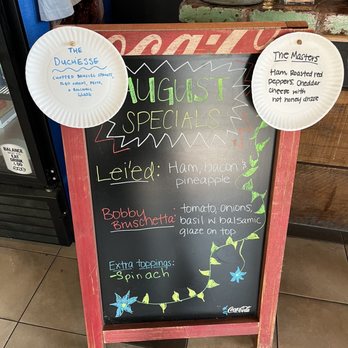 Coca-Cola
THE
DUCHESSE
CHOPPED BRUSSEL SPROUTS,
FETA
& BALSAMIC
GLAZE
The Masters
Ham, Roasted red
peppers, Cheddar
cheese with
hot honey drizzle
AUGUST
SPECIALS
Lei'ed: Ham, bacon &
pineapple
Bobby
Bruschetta: tomato, onions,
basil w balsamic
glaze on top
Extra toppings:
-Spinach
Coca-Cola
BALANCE
EAT